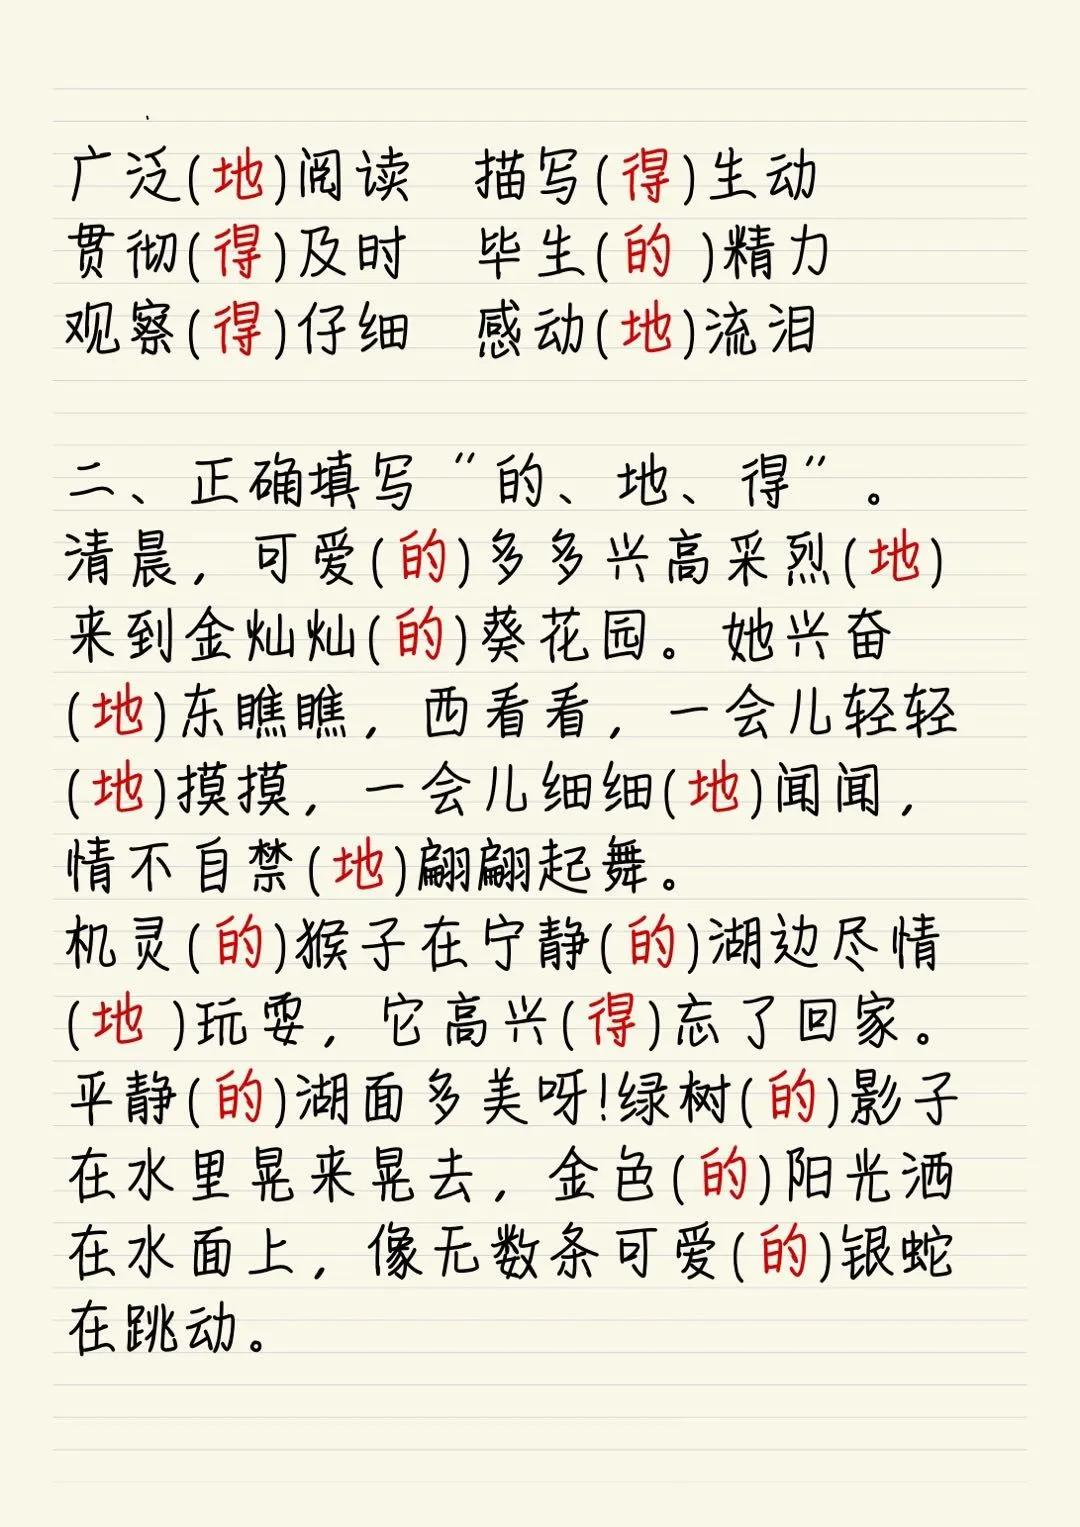 广泛(地)阅读 描写(得)生动
贯彻(得)及时 毕生(的 )精力
观察(得)仔细 感动(地)流泪
二、正确填写“的、地、得”。
清晨，可爱(的)多多兴高采烈(地)
来到金灿灿(的)葵花园。她兴奋
(地)东瞧瞧，西看看，一会儿轻轻
(地)摸摸，一会儿细细(地)闻闻，
情不自禁(地)翩翩起舞。
机灵(的)猴子在宁静(的)湖边尽情
(地 )玩耍，它高兴(得)忘了回家。
平静(的)湖面多美呀!绿树(的)影子
在水里晃来晃去，金色(的)阳光洒
在水面上，像无数条可爱(的)银蛇
在跳动。